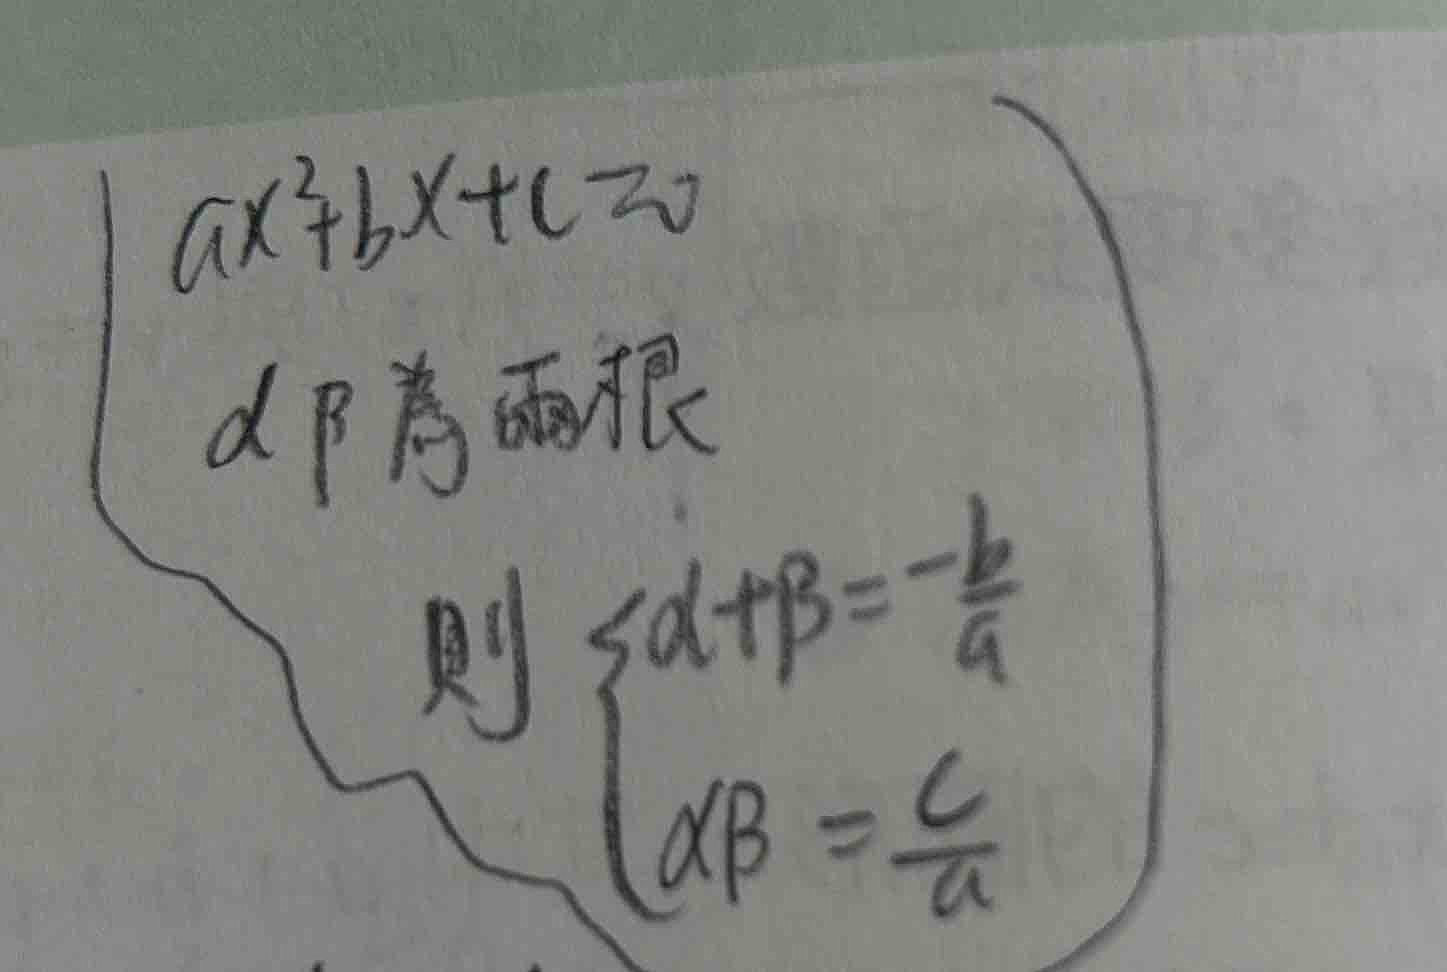 ax²+bx+c=0
α β 為兩根
則 { α+β = -b/a
αβ = c/a